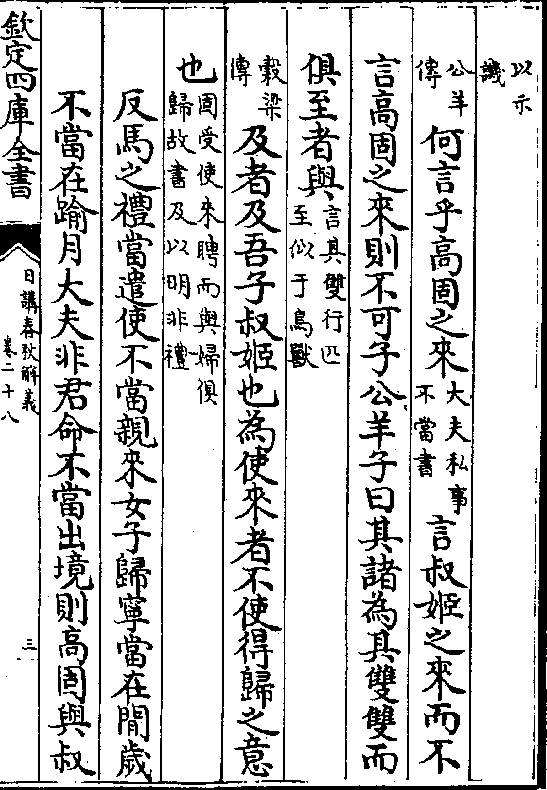 以示
譏
公羊
傳
何言乎高固之來
大夫私事
不當書
言叔姬之來而不
言高固之來則不可子公羊子曰其諸為其雙雙而
俱至者與
言其雙行匹
至似于鳥獸
穀梁
傳
及者及吾子叔姬也為使來者不使得歸之意
也
固受使來聘而與婦俱
歸故書及以明非禮
反馬之禮當遣使不當親來女子歸寧當在閒歲
不當在踰月大夫非君命不當出境則高固與叔
欽定四庫全書
日講春秋解義
卷二十八
三